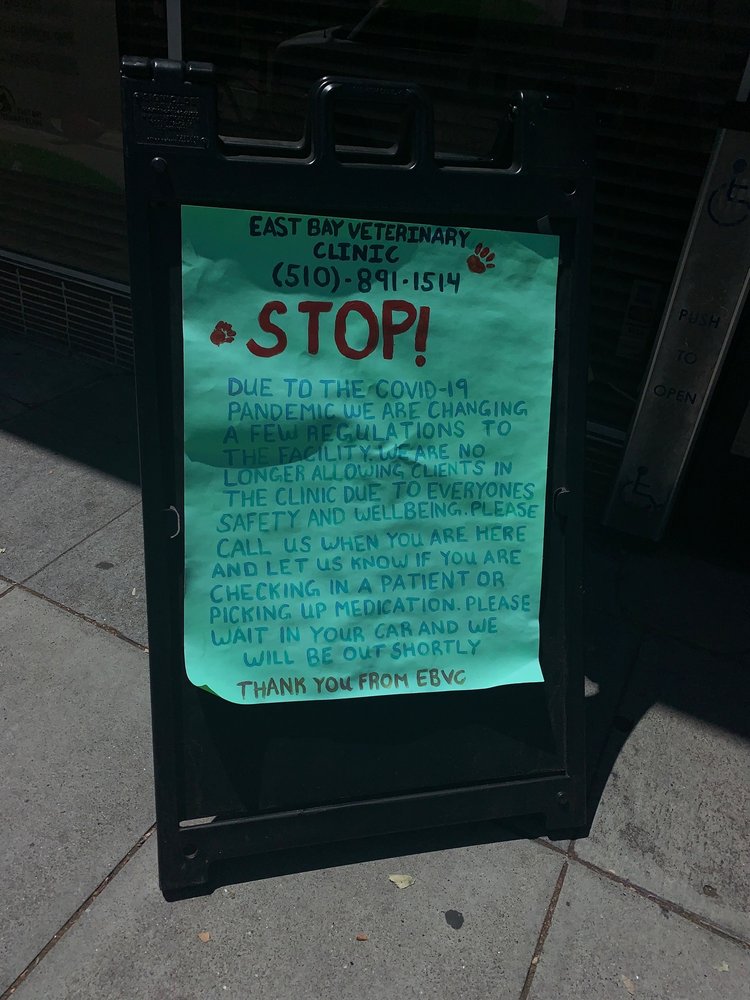 EAST BAY VETERINARY
CLINIC
(510)-891-1514
STOP!
DUE TO THE COVID-19
PANDEMIC WE ARE CHANGING
A FEW REGULATIONS TO
THE FACILITY. WE ARE NO
LONGER ALLOWING CLIENTS IN
THE CLINIC DUE TO EVERYONES
SAFETY AND WELLBEING. PLEASE
CALL US WHEN YOU ARE HERE
AND LET US KNOW IF YOU ARE
CHECKING IN A PATIENT OR
PICKING UP MEDICATION. PLEASE
WAIT IN YOUR CAR AND WE
WILL BE OUT SHORTLY
THANK YOU FROM EBVC
PUSH
TO
OPEN